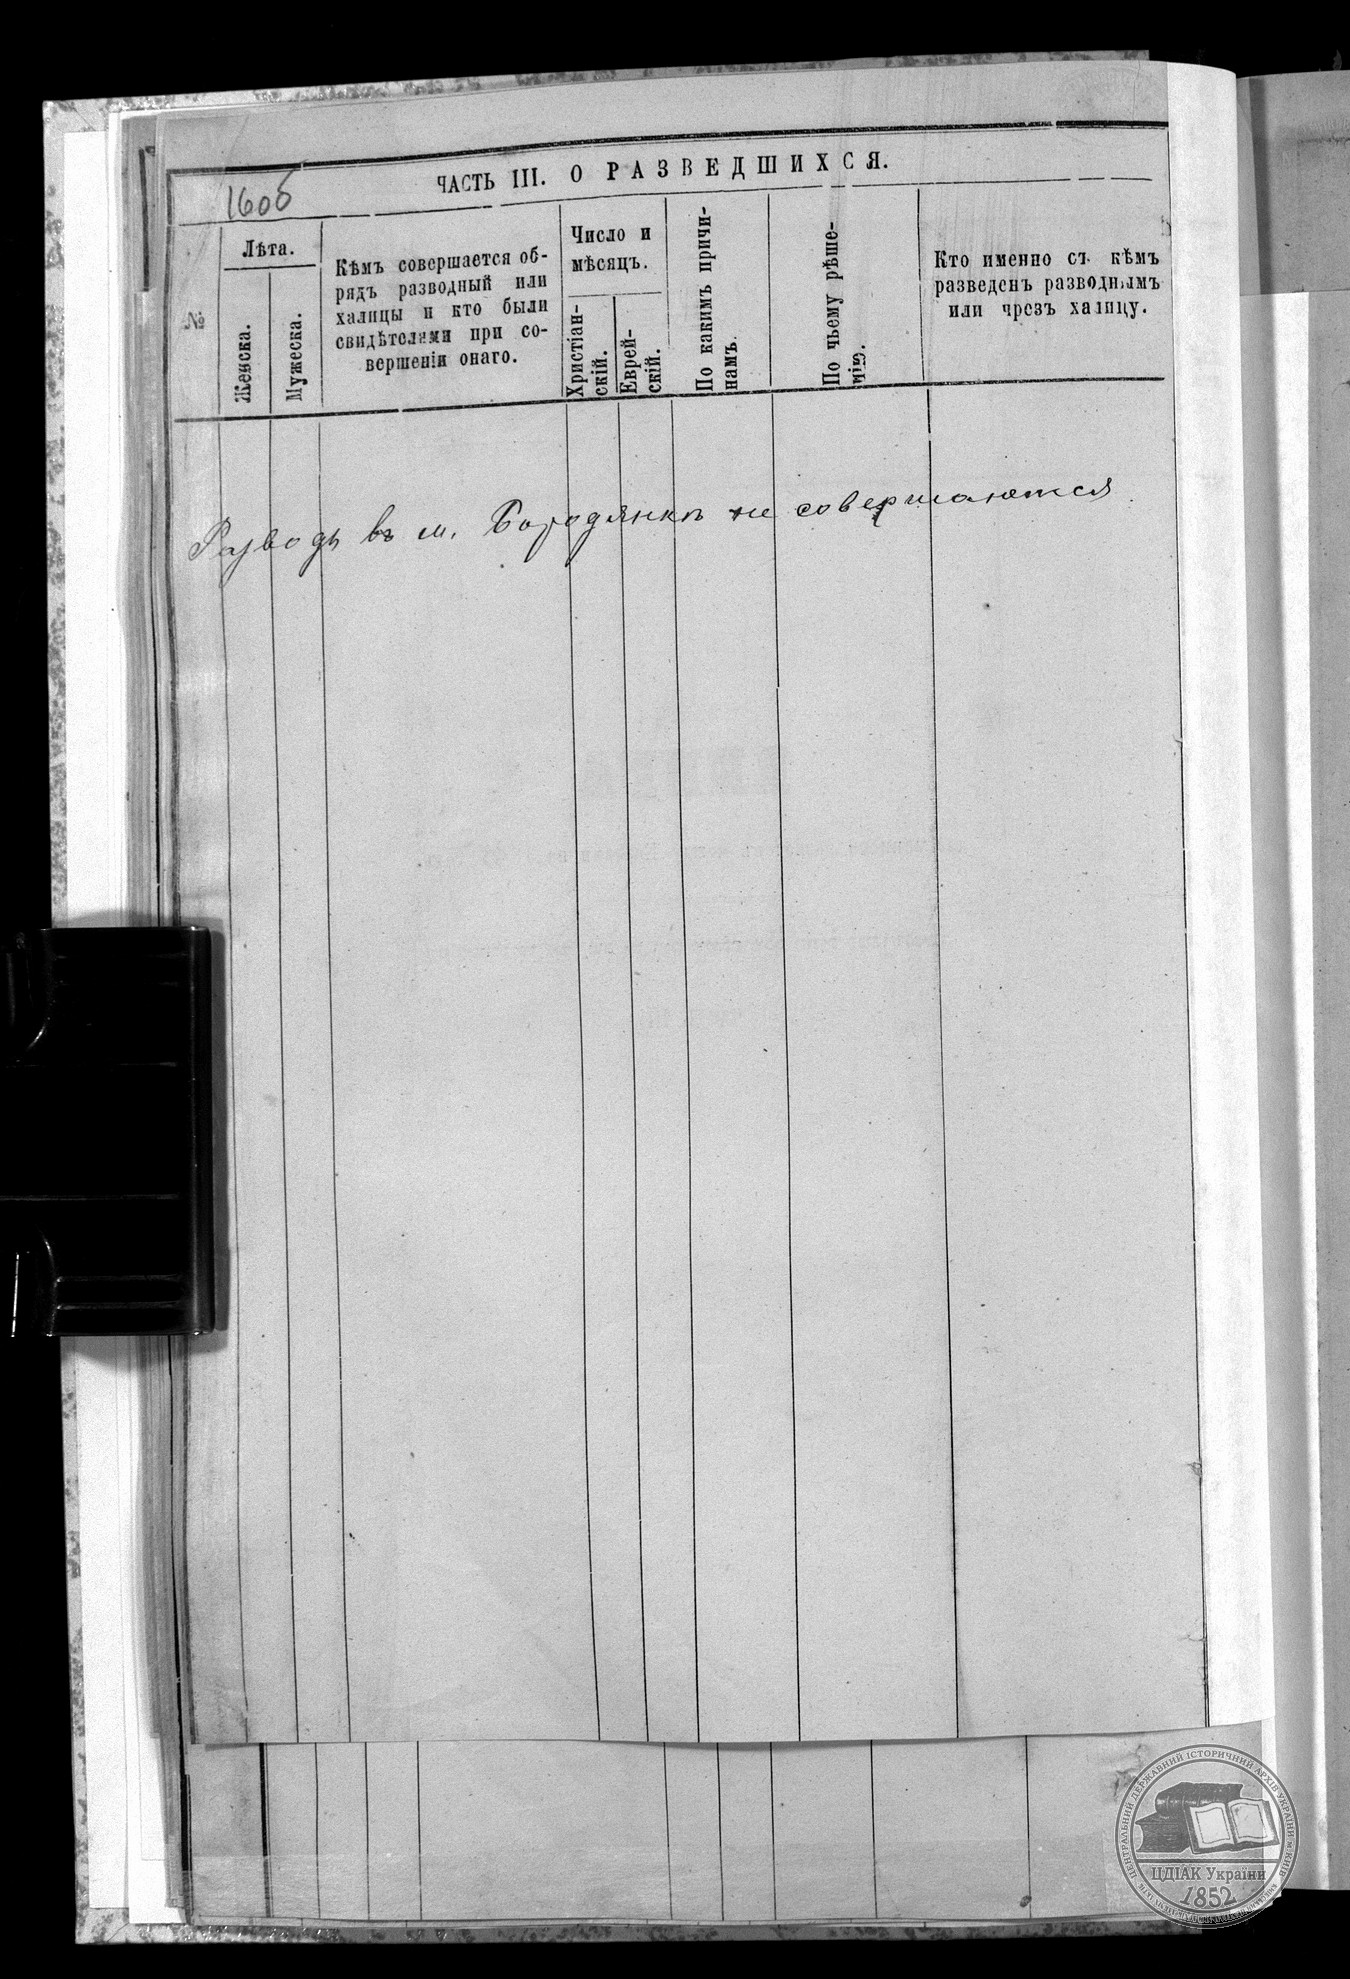 ЧАСТЬ III. О РАЗВЕДШИХСЯ.
160б
№
Лѣта.
Женска.
Мужеска.
Кѣмъ совершается об-
рядъ разводный или
халицы и кто были
свидѣтелями при со-
вершеніи онаго.
Число и
мѣсяцъ.
Христіан-
скій.
Еврей-
скій.
По какимъ причи-
намъ.
По чьему рѣше-
нію.
Кто именно съ кѣмъ
разведенъ разводнымъ
или чрезъ халицу.
Разводы въ м. Бородянкѣ не совершаются
ЦЕНТРАЛЬНИЙ ДЕРЖАВНИЙ ІСТОРИЧНИЙ АРХІВ УКРАЇНИ м.КИЇВ
ЦДІАК України
1852